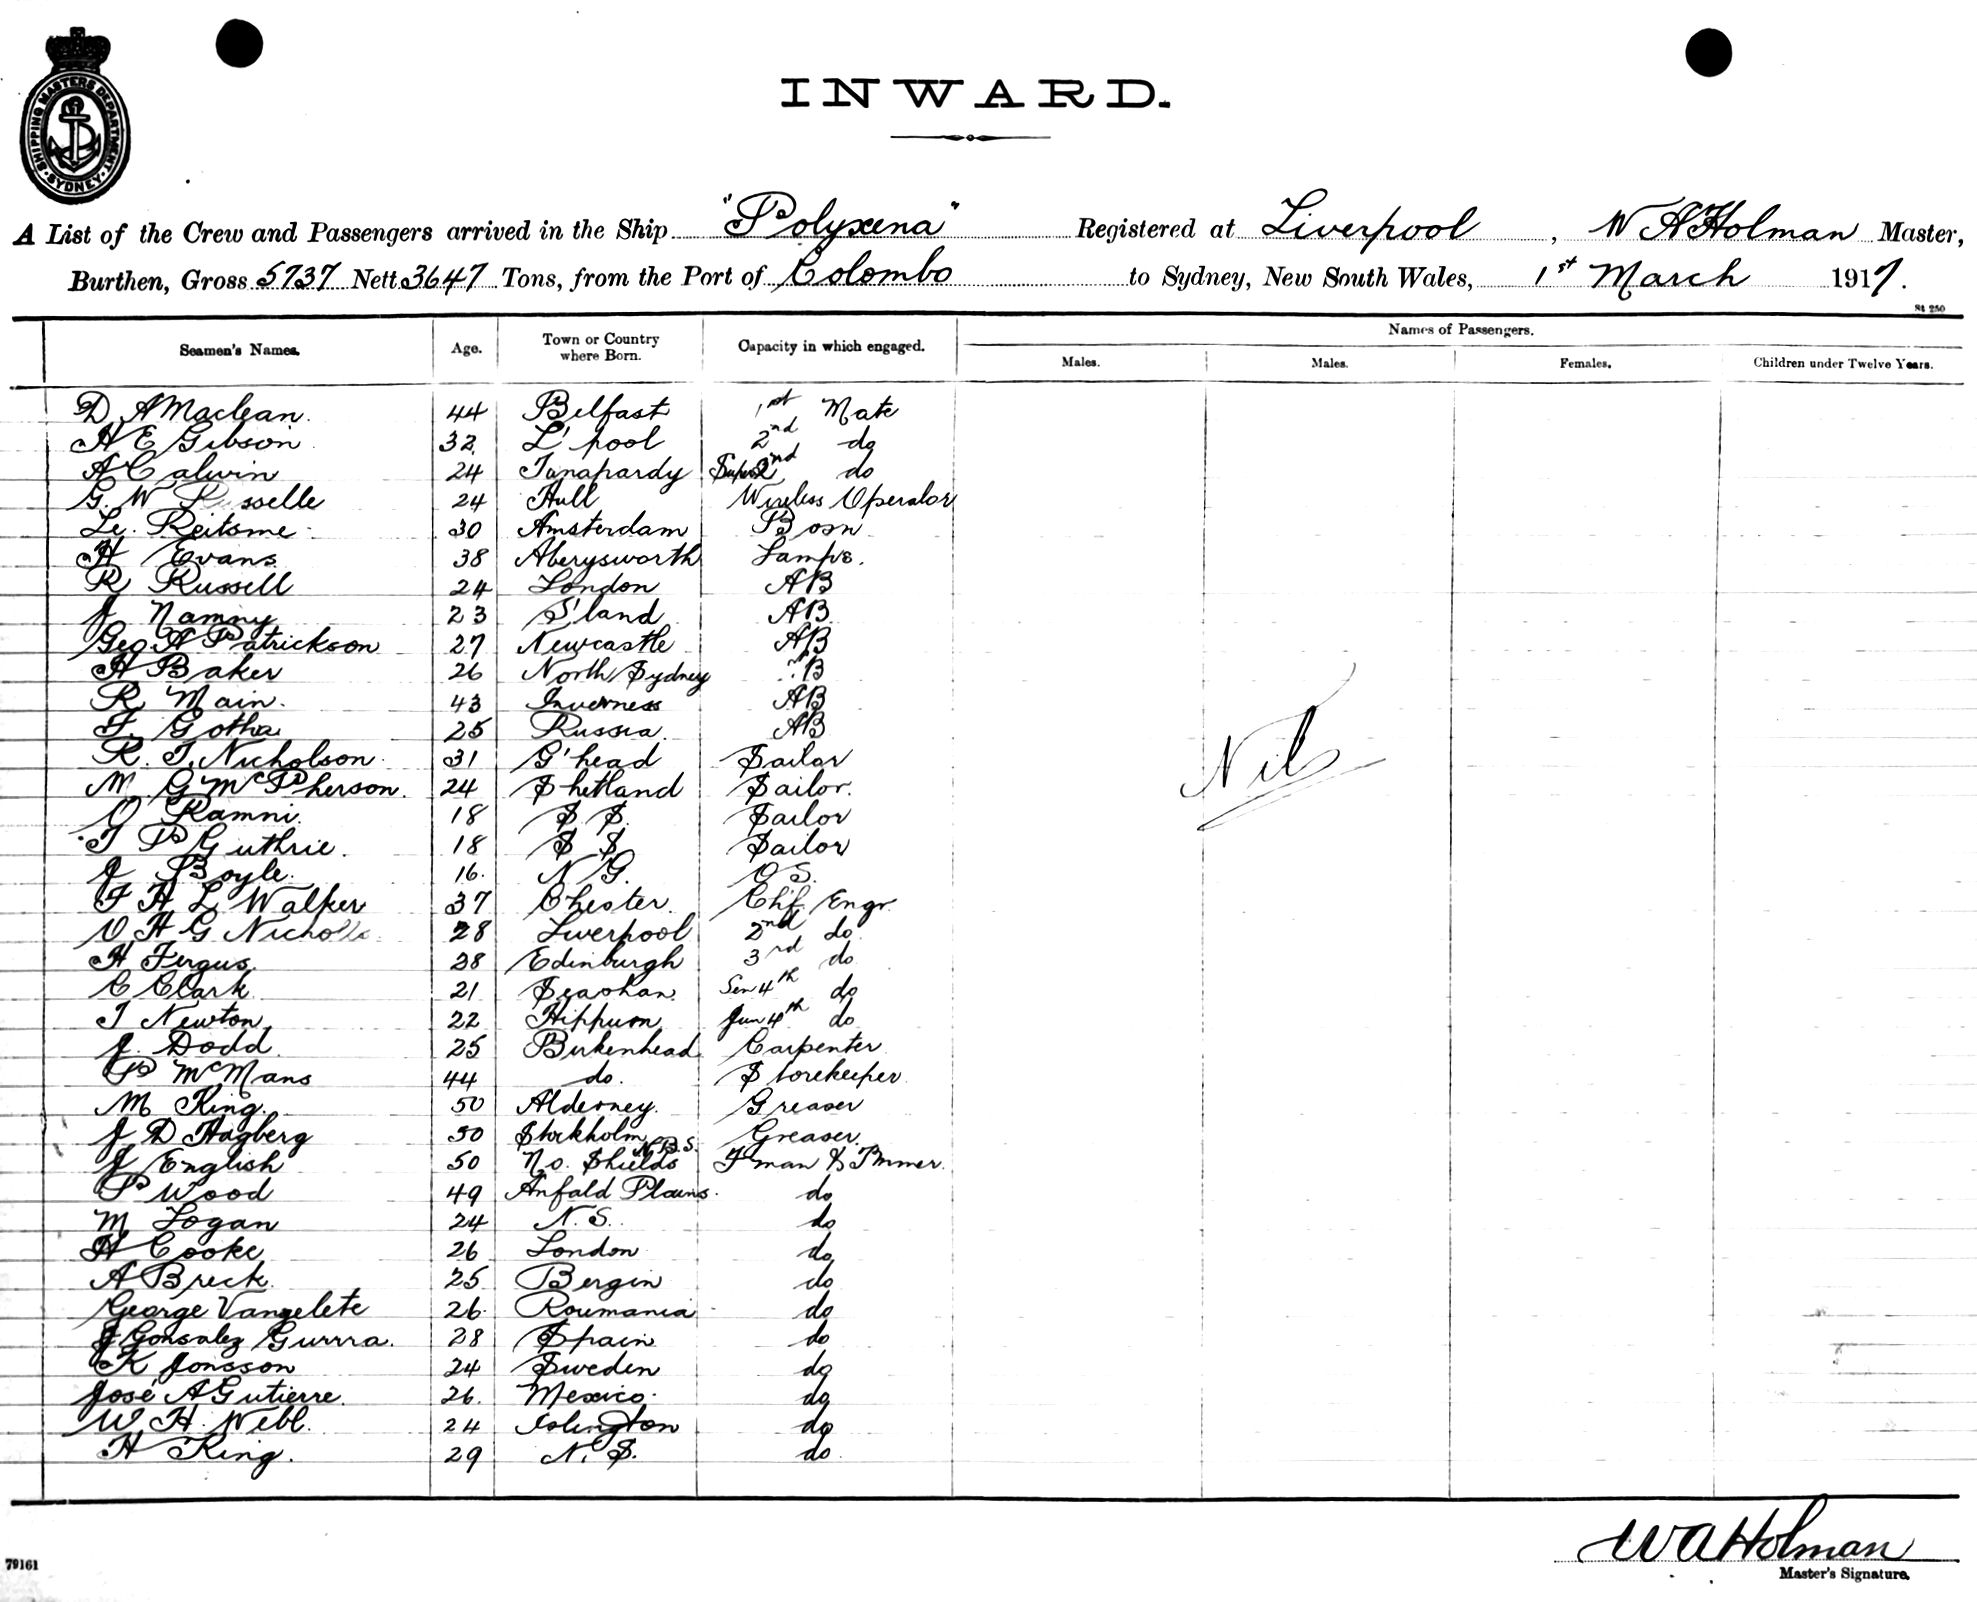 SHIPPING MASTERS DEPARTMENT SYDNEY
INWARD.
A List of the Crew and Passengers arrived in the Ship "Polyxena" Registered at Liverpool, W A Holman Master,
Burthen, Gross 5737 Nett 3647 Tons, from the Port of Colombo to Sydney, New South Wales, 1st March 1917.
St 250
Seamen's Names. Age. Town or Country where Born. Capacity in which engaged. Names of Passengers.
Males. Males. Females. Children under Twelve Years.
D A Maclean. 44 Belfast 1st Mate
H E Gibson 32 L'pool 2nd do
A Calwin 24 Tanapardy 2nd do
G. W sselle 24 Hull Wireless Operator
Le. Reitsme 30 Amsterdam Bosn
H Evans 38 Aberysworth Lamps.
R Russell 24 London AB
J Namny 23 S'land AB
Geo A Patrickson 27 Newcastle AB
H Baker 26 North Sydney B
R Main. 43 Inverness AB
F. Gotha 25 Russia AB
R. T. Nicholson 31 G'head Sailor
M. G McPherson. 24 Shetland Sailor.
O Ramni. 18 S S. Sailor
T P Guthrie. 18 S S Sailor
J Boyle. 16. N G. O S.
F H L Walker 37 Chester. Chf Engr.
O H G Nicholls 28 Liverpool 2nd do
H Fergus 28 Edinburgh 3rd do
C Clark 21 Seaohan Sen 4th do
T Newton 22 Hippuon Jun 4th do
J. Dodd 25 Birkenhead Carpenter
P McMans 44 do. Storekeeper
M King. 50 Alderney. Greaser
J D Hagberg 50 Stockholm Greaser.
N.B.S.
J English 50 No. Shields F'man & Tmmer.
P Wood 49 Anfald Plains. do
M Logan 24 N. S. do
H Cooke 26 London do
A Breck 25 Bergin do
George Vangelete 26. Roumania do
J Gonsalez Gurrra. 28 Spain do
K Jonsson 24 Sweden do
José A Gutierre. 26. Mexico. do
W. H. Webb. 24 Islington do
H King. 29 N. S. do
Nil
W A Holman
Master's Signature.
79161